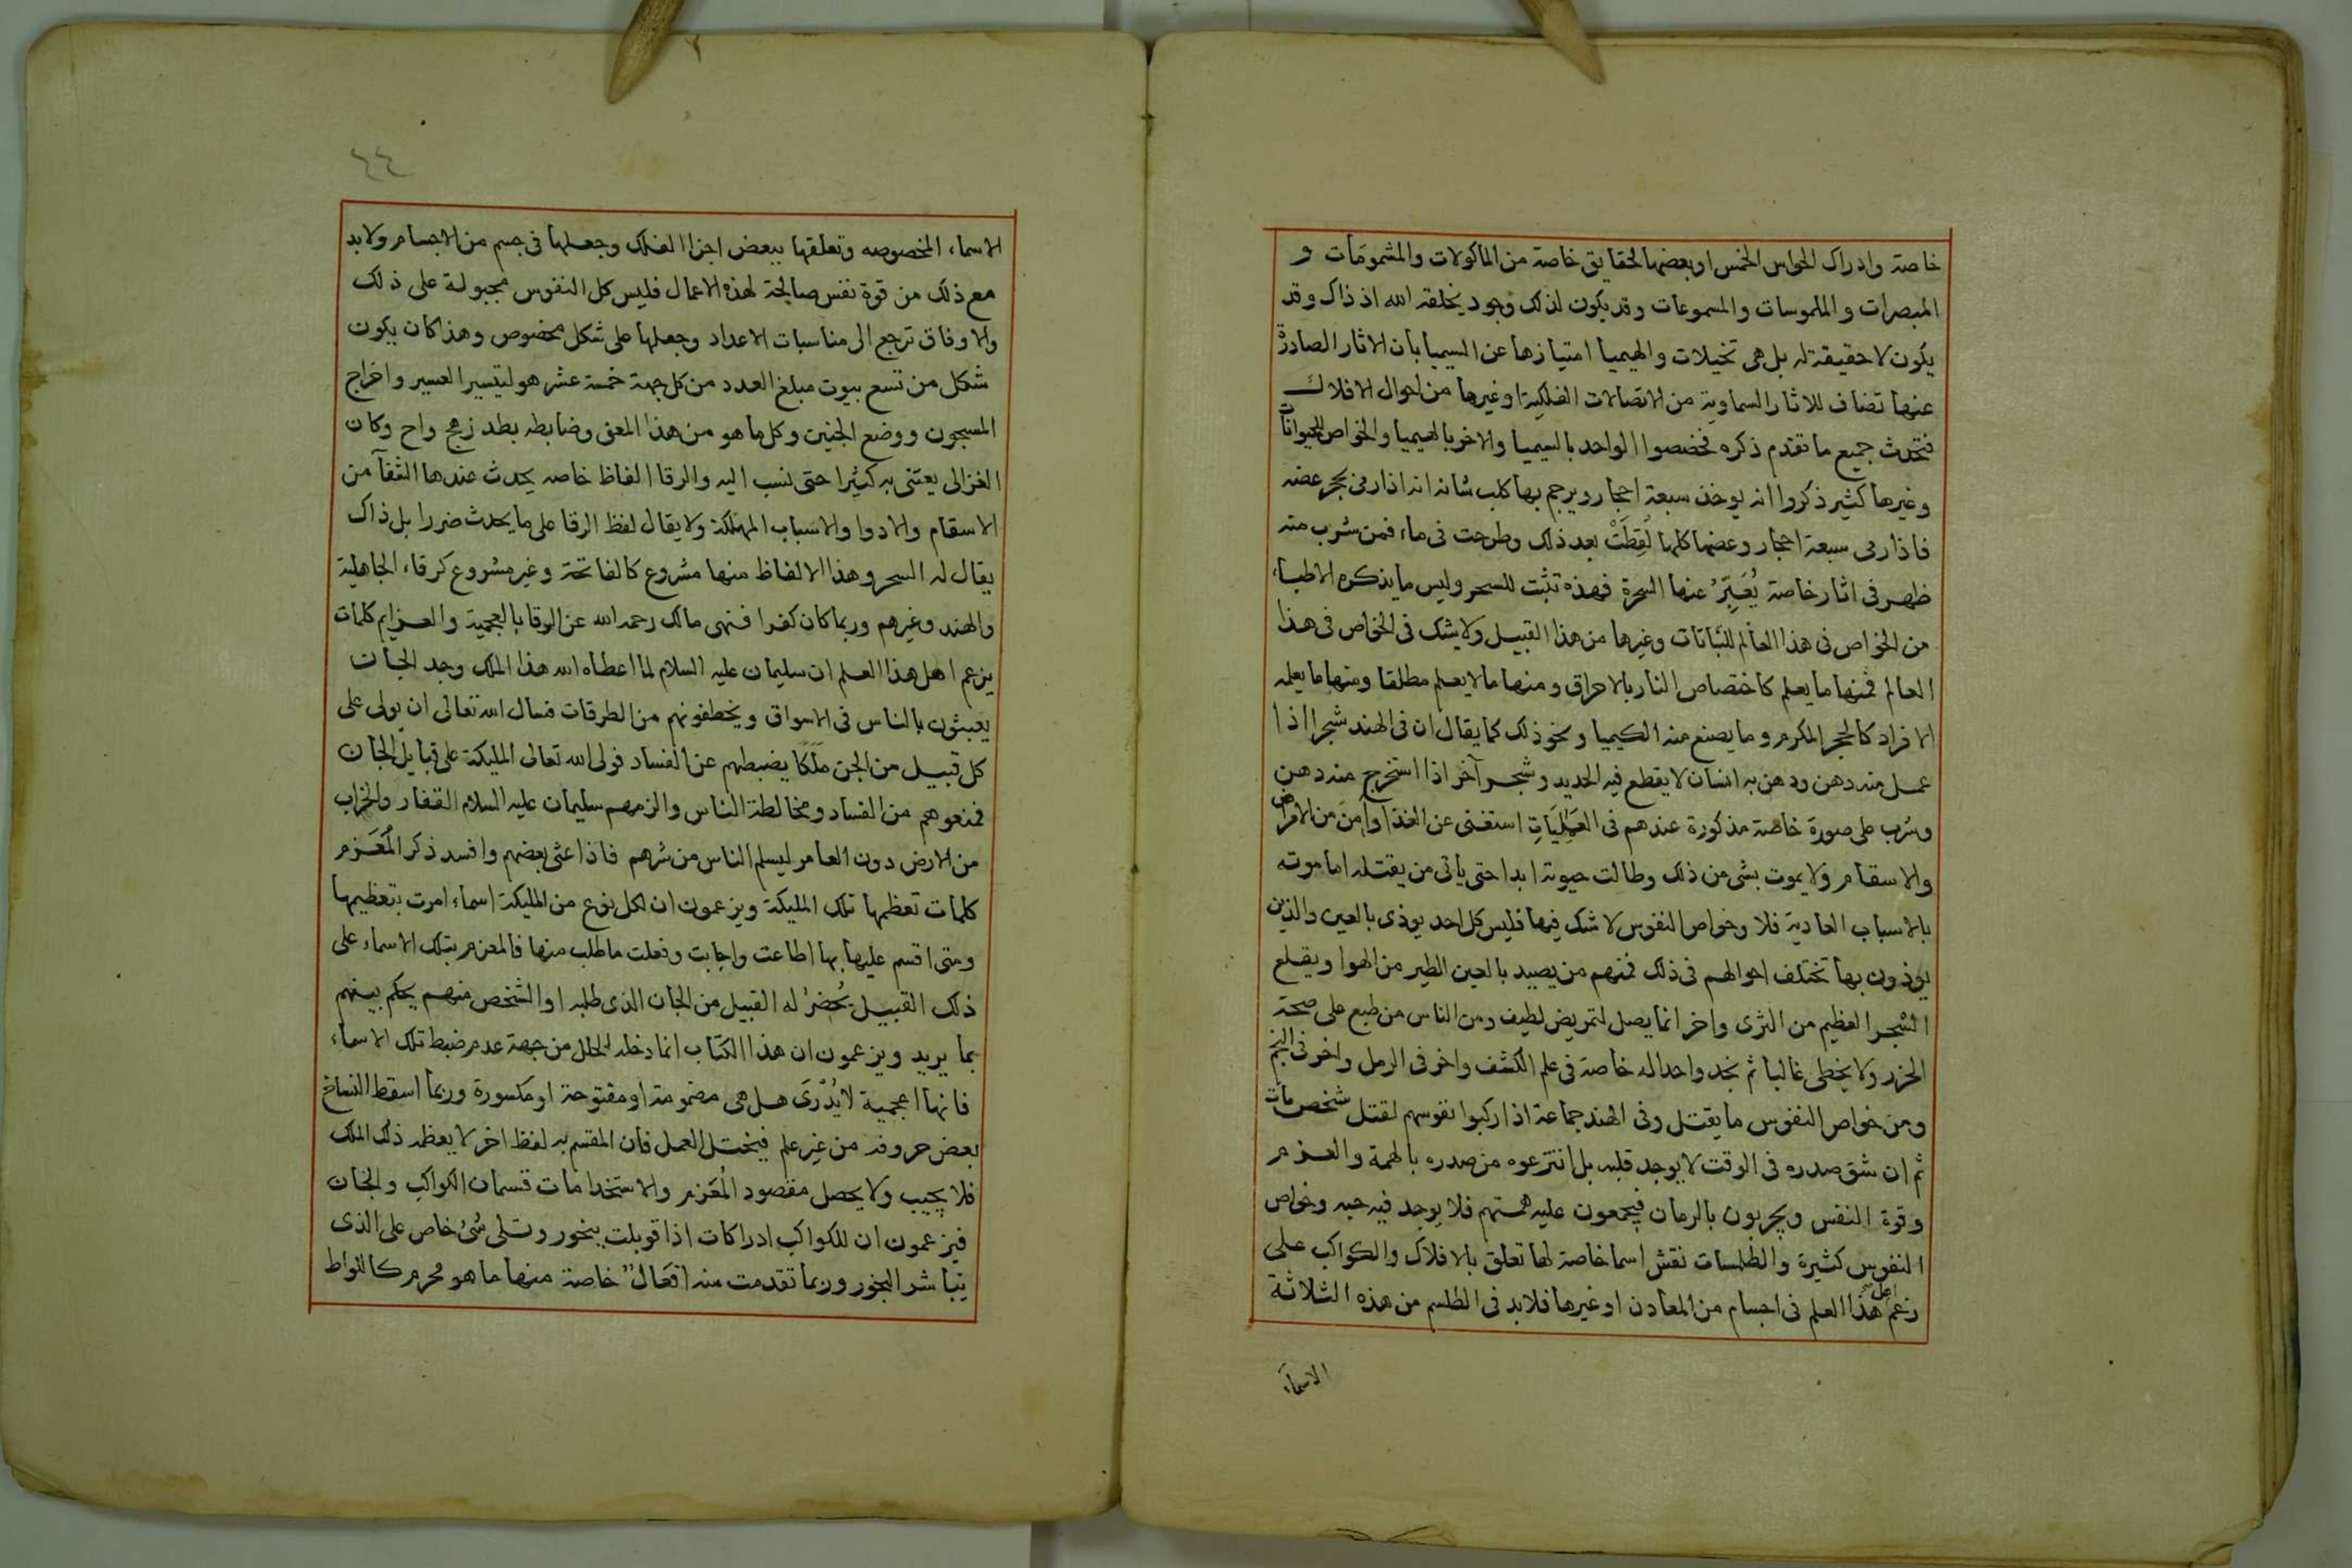 خاصة وادراك الحواس الخمس او بعضها لحقايق خاصة من الماكولات والمشمومات و
المبصرات والملموسات والمسموعات وقد يكون لذلك وجود يخلقه الله اذ ذاك وقد
يكون لا حقيقة له بل هى تخيلات والهيميا امتيازها عن السيميا بأن الاثار الصادرة
عنها تضاف للاثار السماوية من الاتصالات الفلكية او غيرها من احوال الافلاك
فتحدث جميع ما تقدم ذكره فخصصوا الواحد بالسيميا والاخر بالهيميا والخواص للحيوانات
وغيرها كثير ذكروا انه يوخذ سبعة احجار ويرجم بها كلب شانه انه اذا رمى بحجر عضه
فاذا رمى سبعة احجار وعضها كلها لُقِطَتْ بعد ذلك وطرحت فى ماء فمن شرب منه
ظهر فى اثار خاصة يُعَبِّرُ عنها السحرة فهذه تثبت للسحر وليس ما يذكره الاطباء
من الخواص فى هذا العالم للنباتات وغيرها من هذا القبيل ولا يشك فى الخواص فى هذا
العالم فمنها ما يعلم كاختصاص النار بالاحراق ومنها ما لا يعلم مطلقا ومنها ما يعلمه
الافراد كالحجر المكرم وما يصنع منه الكيميا ونحو ذلك كما يقال ان فى الهند شجرا اذا
عمل منه دهن ودهن به انسان لا يقطع فيه الحديد وشجر آخر اذا استخرج منه دهن
وشرب على صورة خاصة مذكورة عندهم فى العَمَلِيَاتِ استغنى عن الغذا وأمِنَ من الامراض
والاسقام ولا يموت بشى من ذلك وطالت حيوته ابدا حتى يأتى من يقتله اما موته
بالاسباب العادية فلا وخواص النفوس لا شك فيها فليس كل احد يوذى بالعين والذين
يوذون بها تختلف احوالهم فى ذلك فمنهم من يصيد بالعين الطير من الهوا ويقلع
الشجر العظيم من الثرى واخر انما يصل لتمريض لطيف ومن الناس من طبع على صحة
الحزر ولا يخطى غالبا ثم نجد واحدا له خاصة فى علم الكشف واخر فى الرمل واخر فى النجم
ومن خواص النفوس ما يقتل وفى الهند جماعة اذا ركبوا نفوسهم لقتل شخص مات
ثم ان شق صدره فى الوقت لا يوجد قلبه بل انتزعوه من صدره بالهمة والعزم
وقوة النفس ويجربون بالرمان فيجمعون عليه همتهم فلا يوجد فيه حبه وخواص
النفوس كثيرة والطلسات نقش اسما خاصة لها تعلق بالافلاك والكواكب على
زعم اهل هذا العلم فى اجسام من المعادن او غيرها فلابد فى الطلسم من هذه الثلاثة
الاسماء
٤٤
الاسماء المخصوصه وتعلقها ببعض اجزا الفلك وجعلها فى جسم من الاجسام ولابد
مع ذلك من قوة نفس صالحة لهذه الاعمال فليس كل النفوس مجبولة على ذلك
والاوفاق ترجع الى مناسبات الاعداد وجعلها على شكل مخصوص وهذا كان يكون
شكل من تسع بيوت مبلغ العدد من كل جهة خمسة عشر هو لتيسير العسير واخراج
المسجون ووضع الجنين وكل ما هو من هذا المعنى وضابطه بطد زهج واح وكان
الغزالى يعتنى به كثيرا حتى نسب اليه والرقا الفاظ خاصه يحدث عندها الشفآ من
الاسقام والادوا والاسباب المهلكة ولا يقال لفظ الرقا على ما يحدث ضررا بل ذاك
يقال له السحر وهذا الالفاظ منها مشروع كالفاتحة وغير مشروع كرقاء الجاهلية
والهند وغيرهم وربما كان كفرا فنهى مالك رحمه الله عن الرقا بالعجمية والعزايم كلمات
يزعم اهل هذا العلم ان سليمان عليه السلام لما اعطاه الله هذا الملك وجد الجان
يعبثون بالناس فى الاسواق ويخطفونهم من الطرقات فسال الله تعالى ان يولى على
كل قبيل من الجن مَلَكًا يضبطهم عن الفساد فولى الله تعالى المليكة على قبايل الجان
فمنعوهم من الفساد ومخالطة الناس والزمهم سليمان عليه السلام القفار والخراب
من الارض دون العامر ليسلم الناس من شرهم فاذا عثى بعضهم وافسد ذكر المُعَزم
كلمات تعظمها تلك المليكة ويزعمون ان لكل نوع من المليكة اسماء امرت بتعظيمها
ومتى اقسم عليها بها اطاعت واجابت وفعلت ما طلب منها فالمعزم بتلك الاسماء على
ذلك القبيل يُحْضِرُ له القبيل من الجان الذى طلبه او الشخص منهم يحكم بينهم
بما يريد ويزعمون ان هذا الكتاب انما دخله الخلل من جهة عدم ضبط تلك الاسماء
فانها اعجمية لا يُدْرَى هل هى مضمومة او مفتوحة او مكسورة وربما اسقط النساخ
بعض حروفه من غير علم فيختل العمل فان المقسم به لفظ اخر لا يعظمه ذلك الملك
فلا يجيب ولا يحصل مقصود المُعَزم والاستخدامات قسمان الكواكب والجان
فيزعمون ان للكواكب ادراكات اذا قوبلت ببخور وتلى شئ خاص على الذى
يباشر البخور وربما تقدمت منه افعالٌ خاصة منها ما هو محرم كاللواط